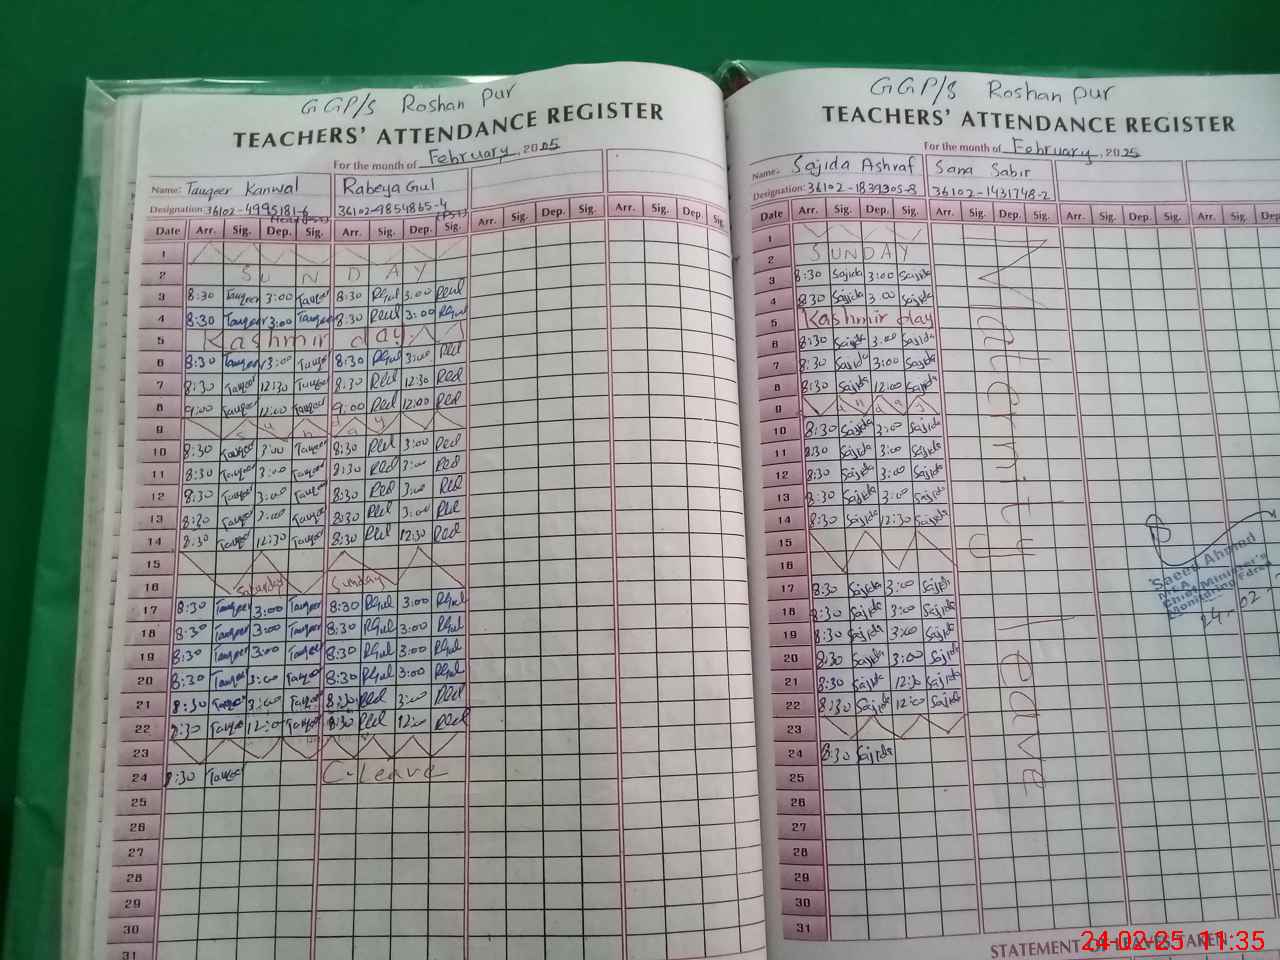 GGP/S Roshan Pur
TEACHERS' ATTENDANCE REGISTER
For the month of February, 2025
Name: Tauqeer Kanwal Rabeya Gul
Designation: 36102-4995181-6 36102-9854865-4
(PST)
Date Arr. Sig. Dep. Sig. Arr. Sig. Dep. Sig. Arr. Sig. Dep. Sig. Arr. Sig. Dep. Sig.
1
2 SUNDAY
3 8:30 Tauqeer 3:00 Tauqeer 8:30 RGul 3:00 RGul
4 8:30 Tauqeer 3:00 Tauqeer 8:30 RGul 3:00 RGul
5 Kashmir day
6 8:30 Tauqeer 3:00 Tauqeer 8:30 RGul 3:00 RGul
7 8:30 Tauqeer 12:30 Tauqeer 8:30 RGul 12:30 RGul
8 9:00 Tauqeer 12:00 Tauqeer 9:00 RGul 12:00 RGul
9 Sunday
10 8:30 Tauqeer 3:00 Tauqeer 8:30 RGul 3:00 RGul
11 8:30 Tauqeer 3:00 Tauqeer 8:30 RGul 3:00 RGul
12 8:30 Tauqeer 3:00 Tauqeer 8:30 RGul 3:00 RGul
13 8:30 Tauqeer 3:00 Tauqeer 8:30 RGul 3:00 RGul
14 8:30 Tauqeer 12:30 Tauqeer 8:30 RGul 12:30 RGul
15
16 Saturday Sunday
17 8:30 Tauqeer 3:00 Tauqeer 8:30 RGul 3:00 RGul
18 8:30 Tauqeer 3:00 Tauqeer 8:30 RGul 3:00 RGul
19 8:30 Tauqeer 3:00 Tauqeer 8:30 RGul 3:00 RGul
20 8:30 Tauqeer 3:00 Tauqeer 8:30 RGul 3:00 RGul
21 8:30 Tauqeer 3:00 Tauqeer 8:30 RGul 3:00 RGul
22 8:30 Tauqeer 12:00 Tauqeer 8:30 RGul 12:00 RGul
23
24 8:30 Tauqeer C-Leave
25
26
27
28
29
30
31
GGP/S Roshan Pur
TEACHERS' ATTENDANCE REGISTER
For the month of February, 2025
Name: Sajida Ashraf Sana Sabir
Designation: 36102-1839305-8 36102-1431748-2
Date Arr. Sig. Dep. Sig. Arr. Sig. Dep. Sig. Arr. Sig. Dep. Sig. Arr. Sig. Dep.
1
2 SUNDAY
3 8:30 Sajida 3:00 Sajida
4 8:30 Sajida 3:00 Sajida
5 Kashmir day
6 8:30 Sajida 3:00 Sajida
7 8:30 Sajida 3:00 Sajida
8 8:30 Sajida 12:00 Sajida
9 Sunday
10 8:30 Sajida 3:00 Sajida
11 8:30 Sajida 3:00 Sajida
12 8:30 Sajida 3:00 Sajida
13 8:30 Sajida 3:00 Sajida
14 8:30 Sajida 12:30 Sajida
15
16
17 8:30 Sajida 3:00 Sajida
18 8:30 Sajida 3:00 Sajida
19 8:30 Sajida 3:00 Sajida
20 8:30 Sajida 3:00 Sajida
21 8:30 Sajida 12:30 Sajida
22 8:30 Sajida 12:00 Sajida
23
24 8:30 Sajida
25
26
27
28
29
30
31
Maternity Leave
Saeed Ahmad
Chief Minister's
Monitoring Force
24-02-
STATEMENT OF LEAVES TAKEN:
24-02-25 11:35